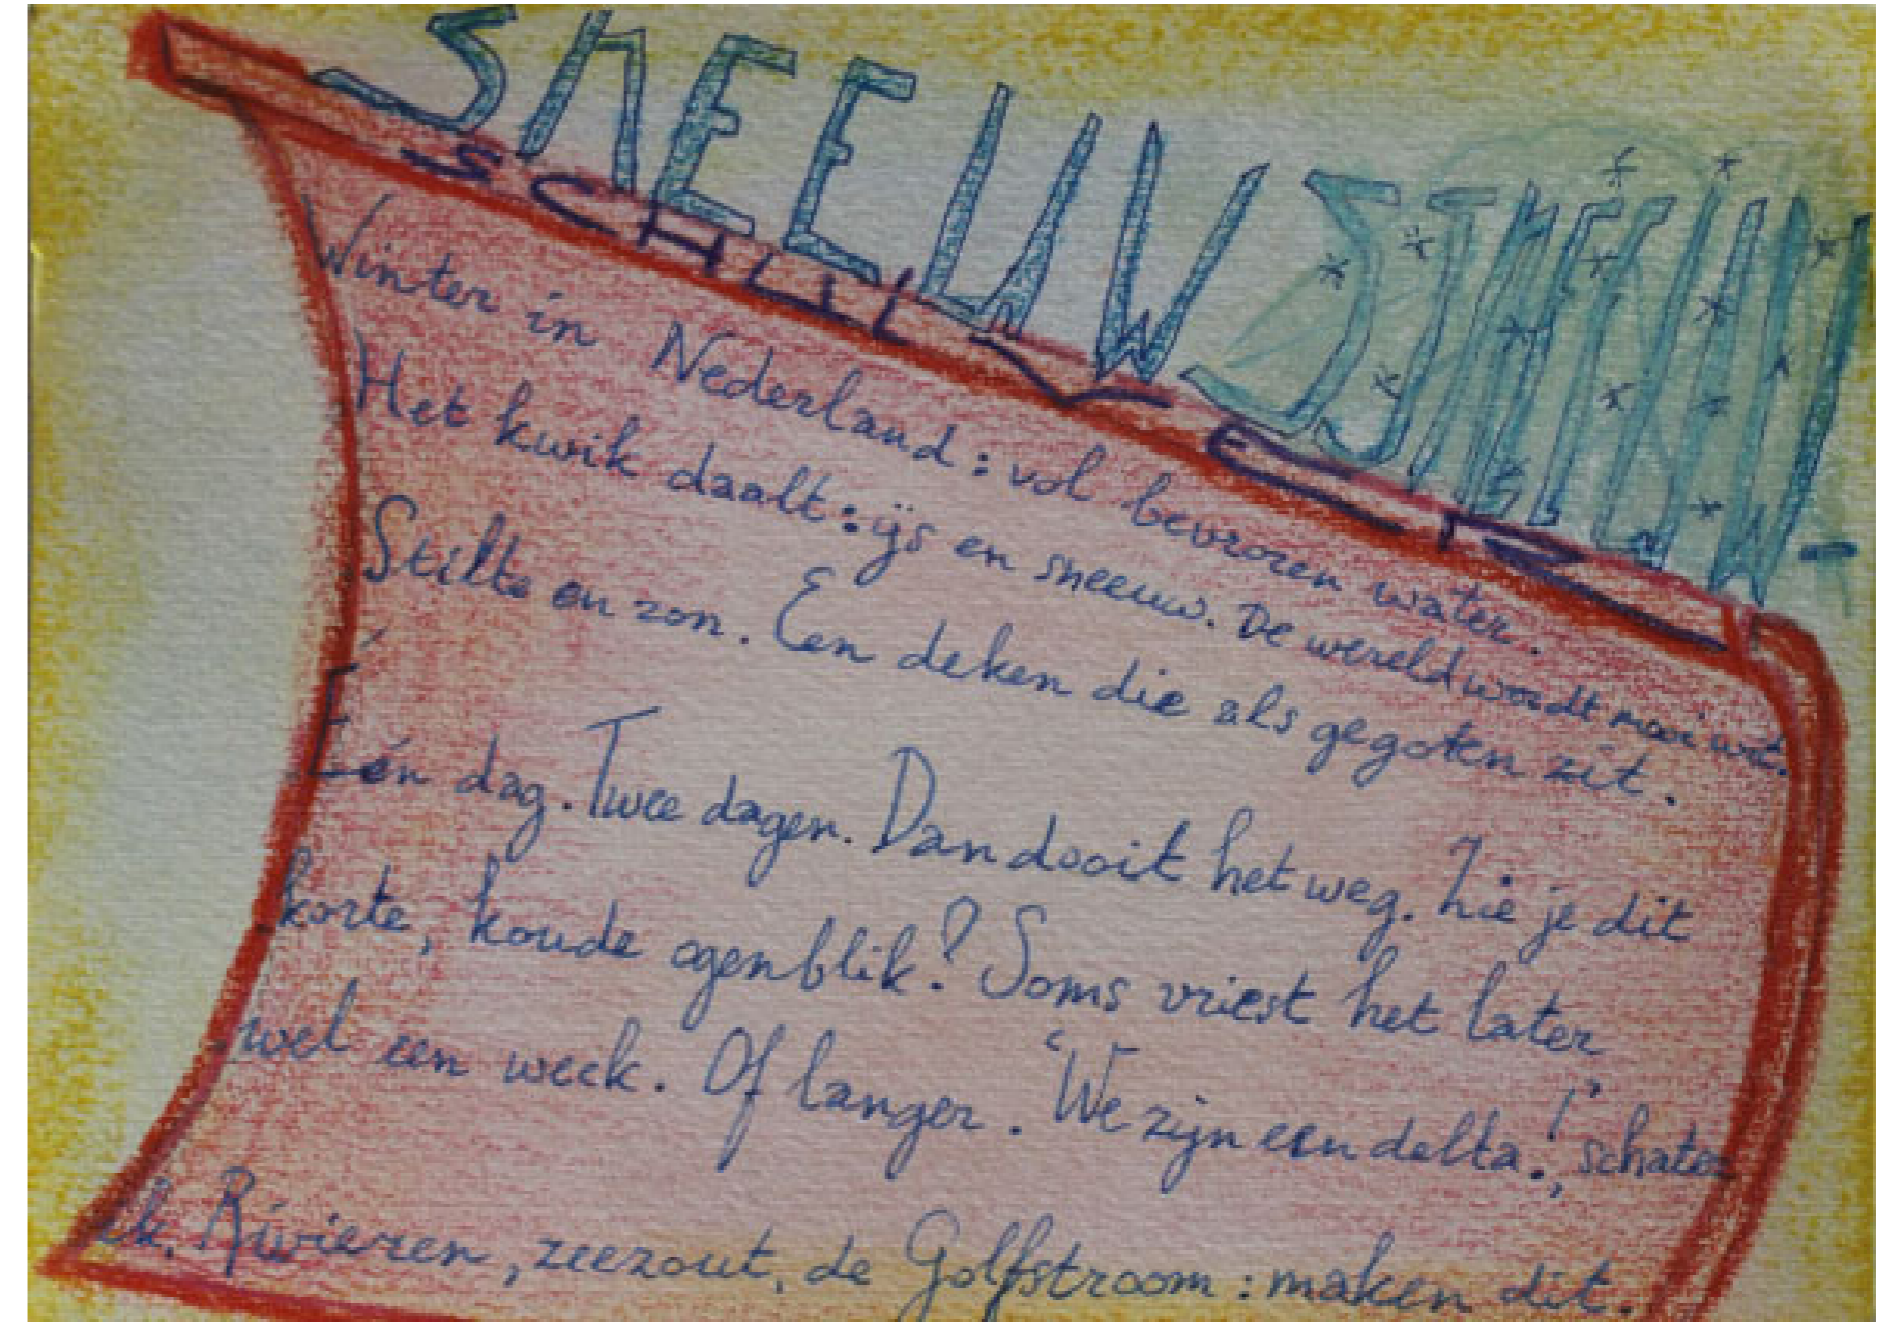 SNEEUW SNEEUW-
SCHUIVER
Winter in Nederland: vol bevroren water.
Het kwik daalt: ijs en sneeuw. De wereld wordt mooi wit.
Stilte en zon. Een deken die als gegoten zit.
Één dag. Twee dagen. Dan dooit het weg. Zie je dit
korte, koude ogenblik? Soms vriest het later
wel een week. Of langer. 'We zijn een delta!', schater
ik. Rivieren, zeezout, de Golfstroom: maken dit.